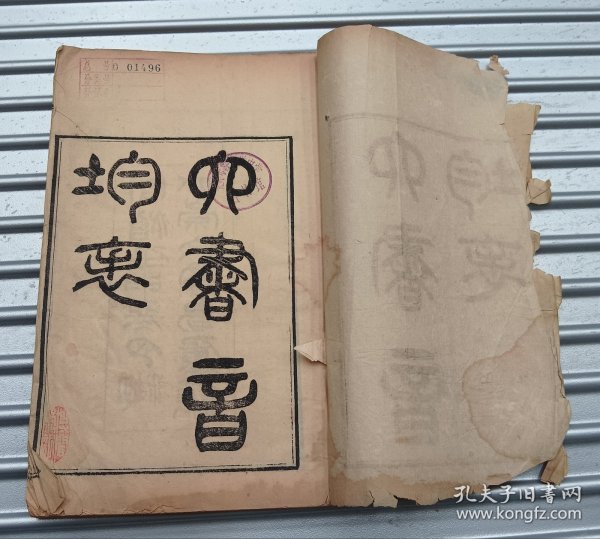 01496
六書音
均表
孔夫子旧书网
www.kongfz.com